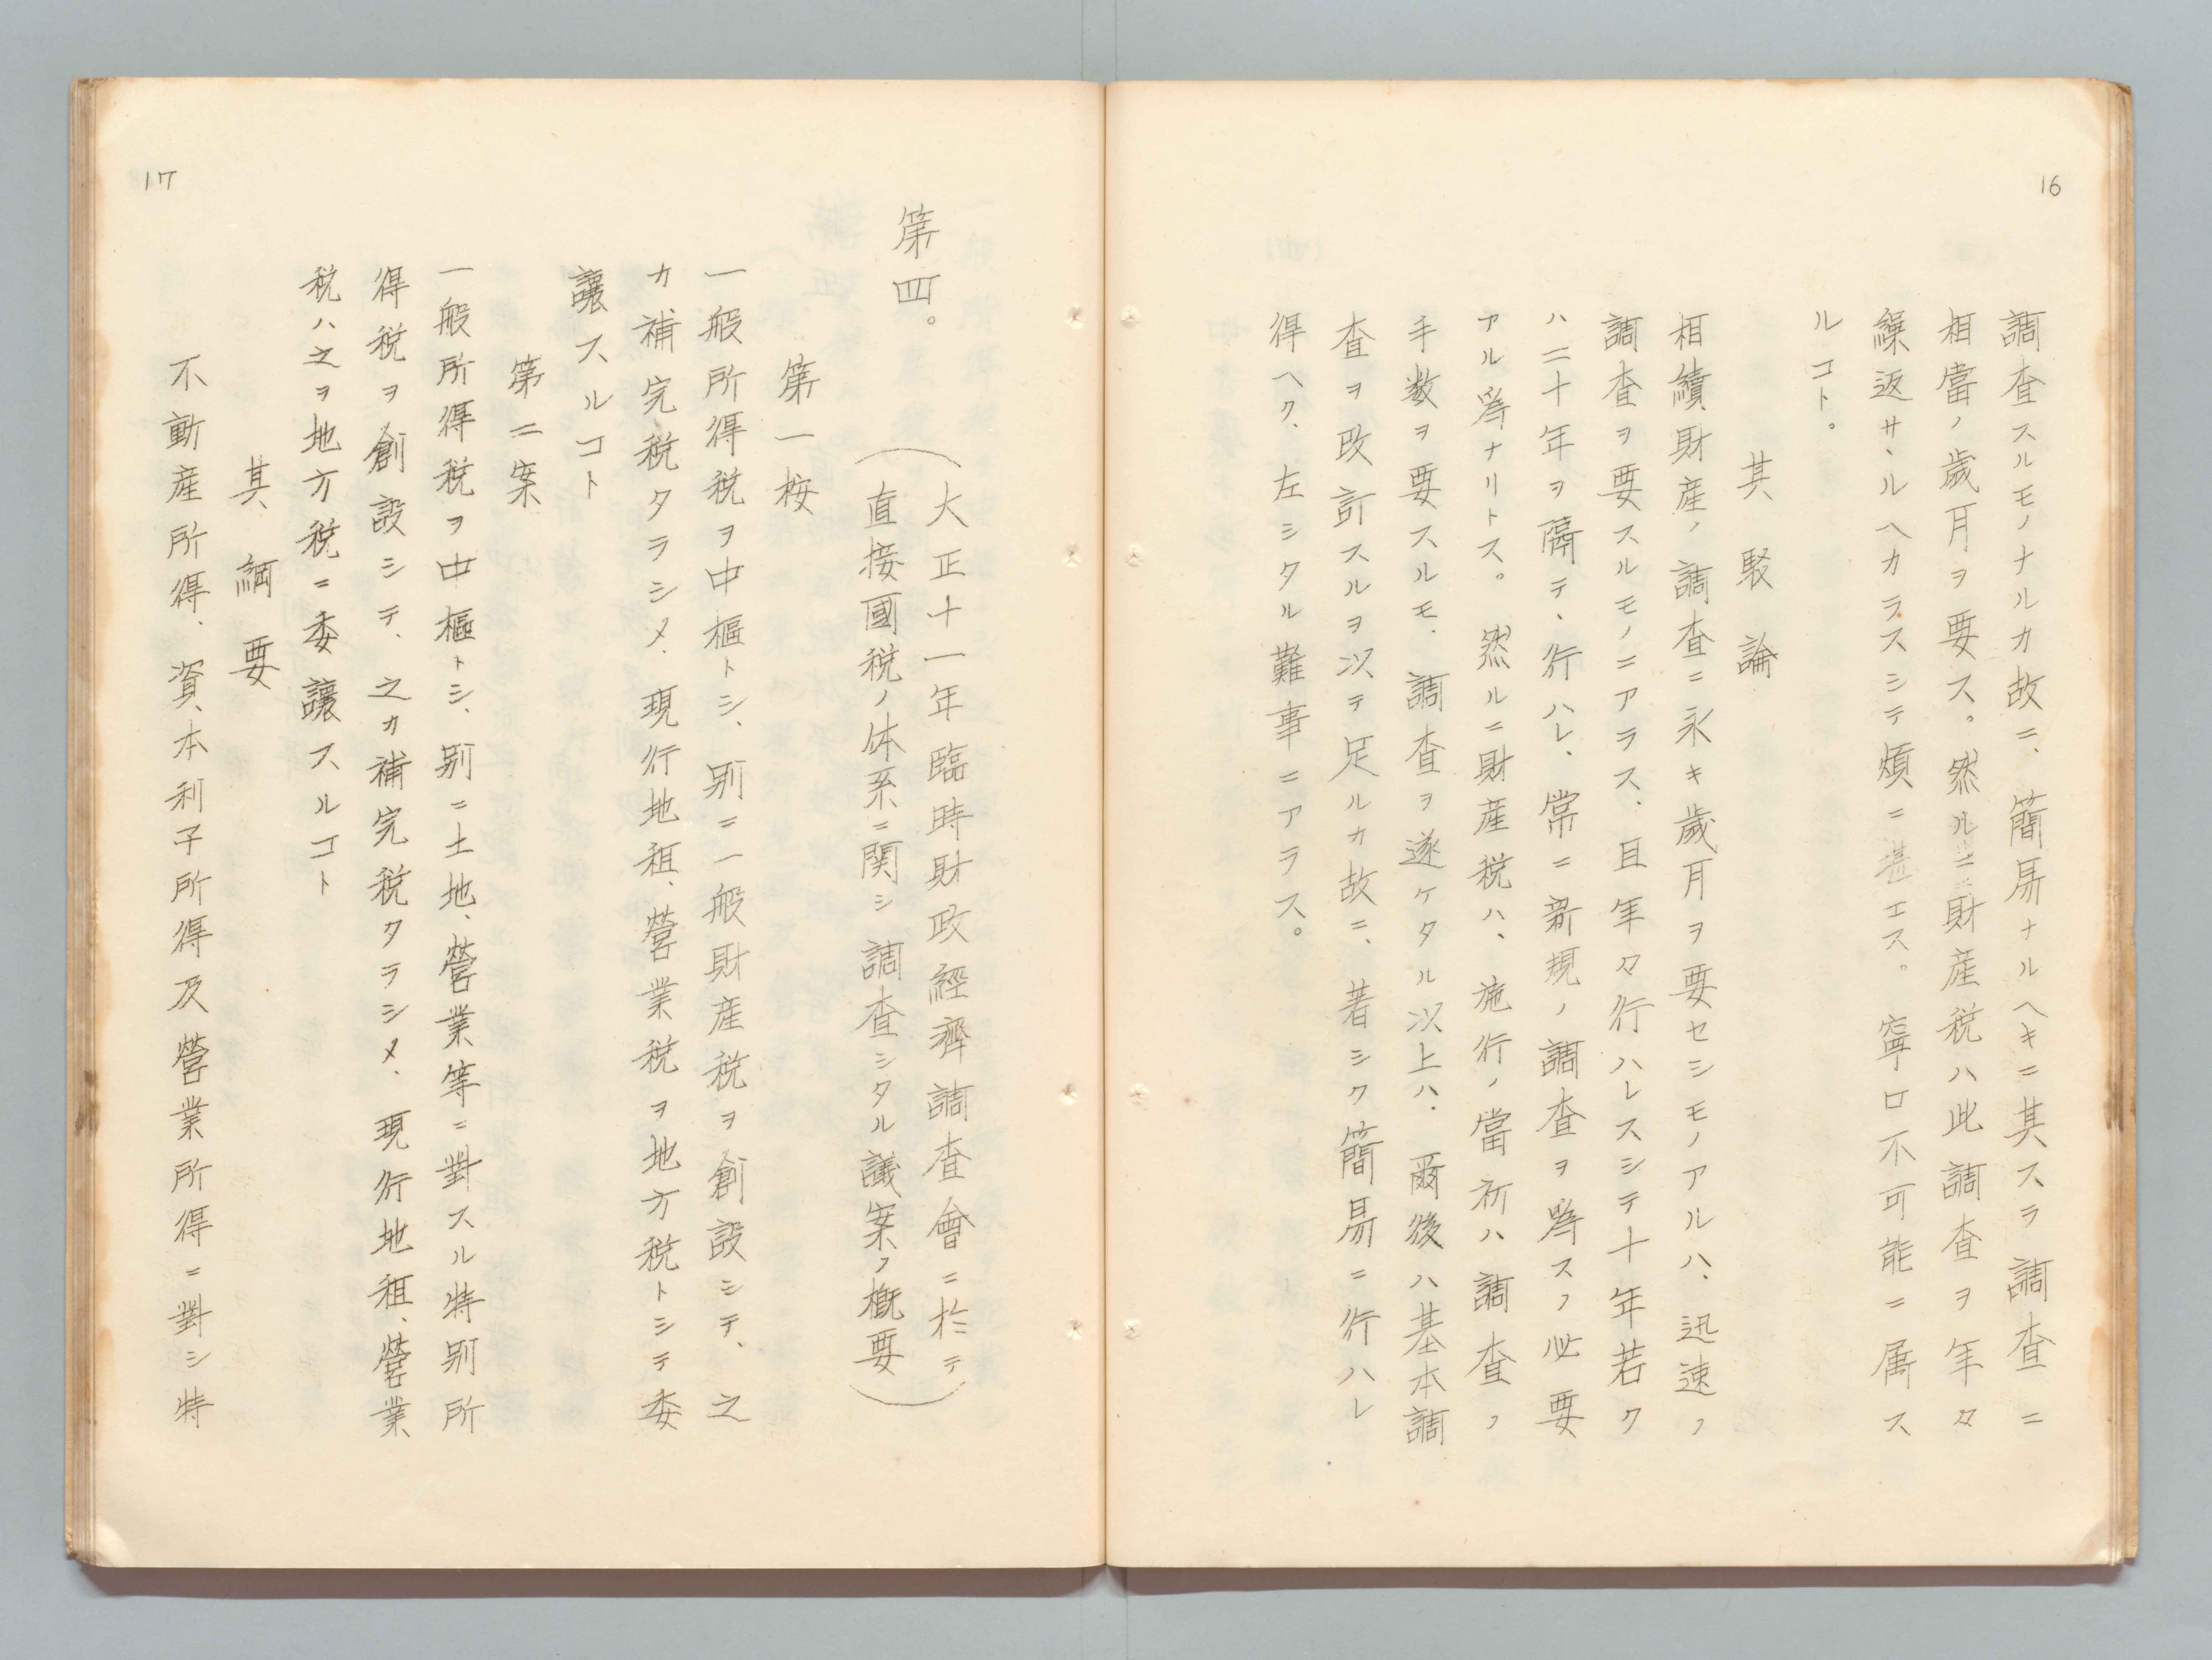 16
調査スルモノナルカ故ニ、簡易ナルヘキニ其スラ調査ニ
相當ノ歳月ヲ要ス。然ルニ財産税ハ此調査ヲ年々
繰返サヽルヘカラスシテ煩ニ堪エス。寧ロ不可能ニ属ス
ルコト。
其駁論
相續財産ノ調査ニ永キ歳月ヲ要セシモノアルハ、迅速ノ
調査ヲ要スルモノニアラス、且年々行ハレスシテ十年若ク
ハ二十年ヲ隔テ、行ハレ、常ニ新規ノ調査ヲ爲スノ必要
アル爲ナリトス。然ルニ財産税ハ、施行ノ當初ハ調査ノ
手数ヲ要スルモ、調査ヲ遂ケタル以上ハ、爾後ハ基本調
査ヲ改訂スルヲ以テ足ルカ故ニ、著シク簡易ニ行ハレ
得ヘク、左シタル難事ニアラス。
17
第四。
(大正十一年臨時財政經濟調査會ニ於テ
直接國税ノ体系ニ関シ調査シタル議案ノ概要)
第一桉
一般所得税ヲ中樞トシ、別ニ一般財産税ヲ創設シテ、之
カ補完税タラシメ、現行地租、營業税ヲ地方税トシテ委
讓スルコト
第二案
一般所得税ヲ中樞トシ、別ニ土地、營業等ニ對スル特別所
得税ヲ創設シテ、之カ補完税タラシメ、現行地租、營業
税ハ之ヲ地方税ニ委讓スルコト
其綱要
不動産所得、資本利子所得及營業所得ニ對シ特